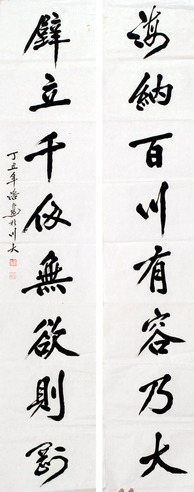 海納百川有容乃大
壁立千仞無欲則剛
丁丑年書於川大